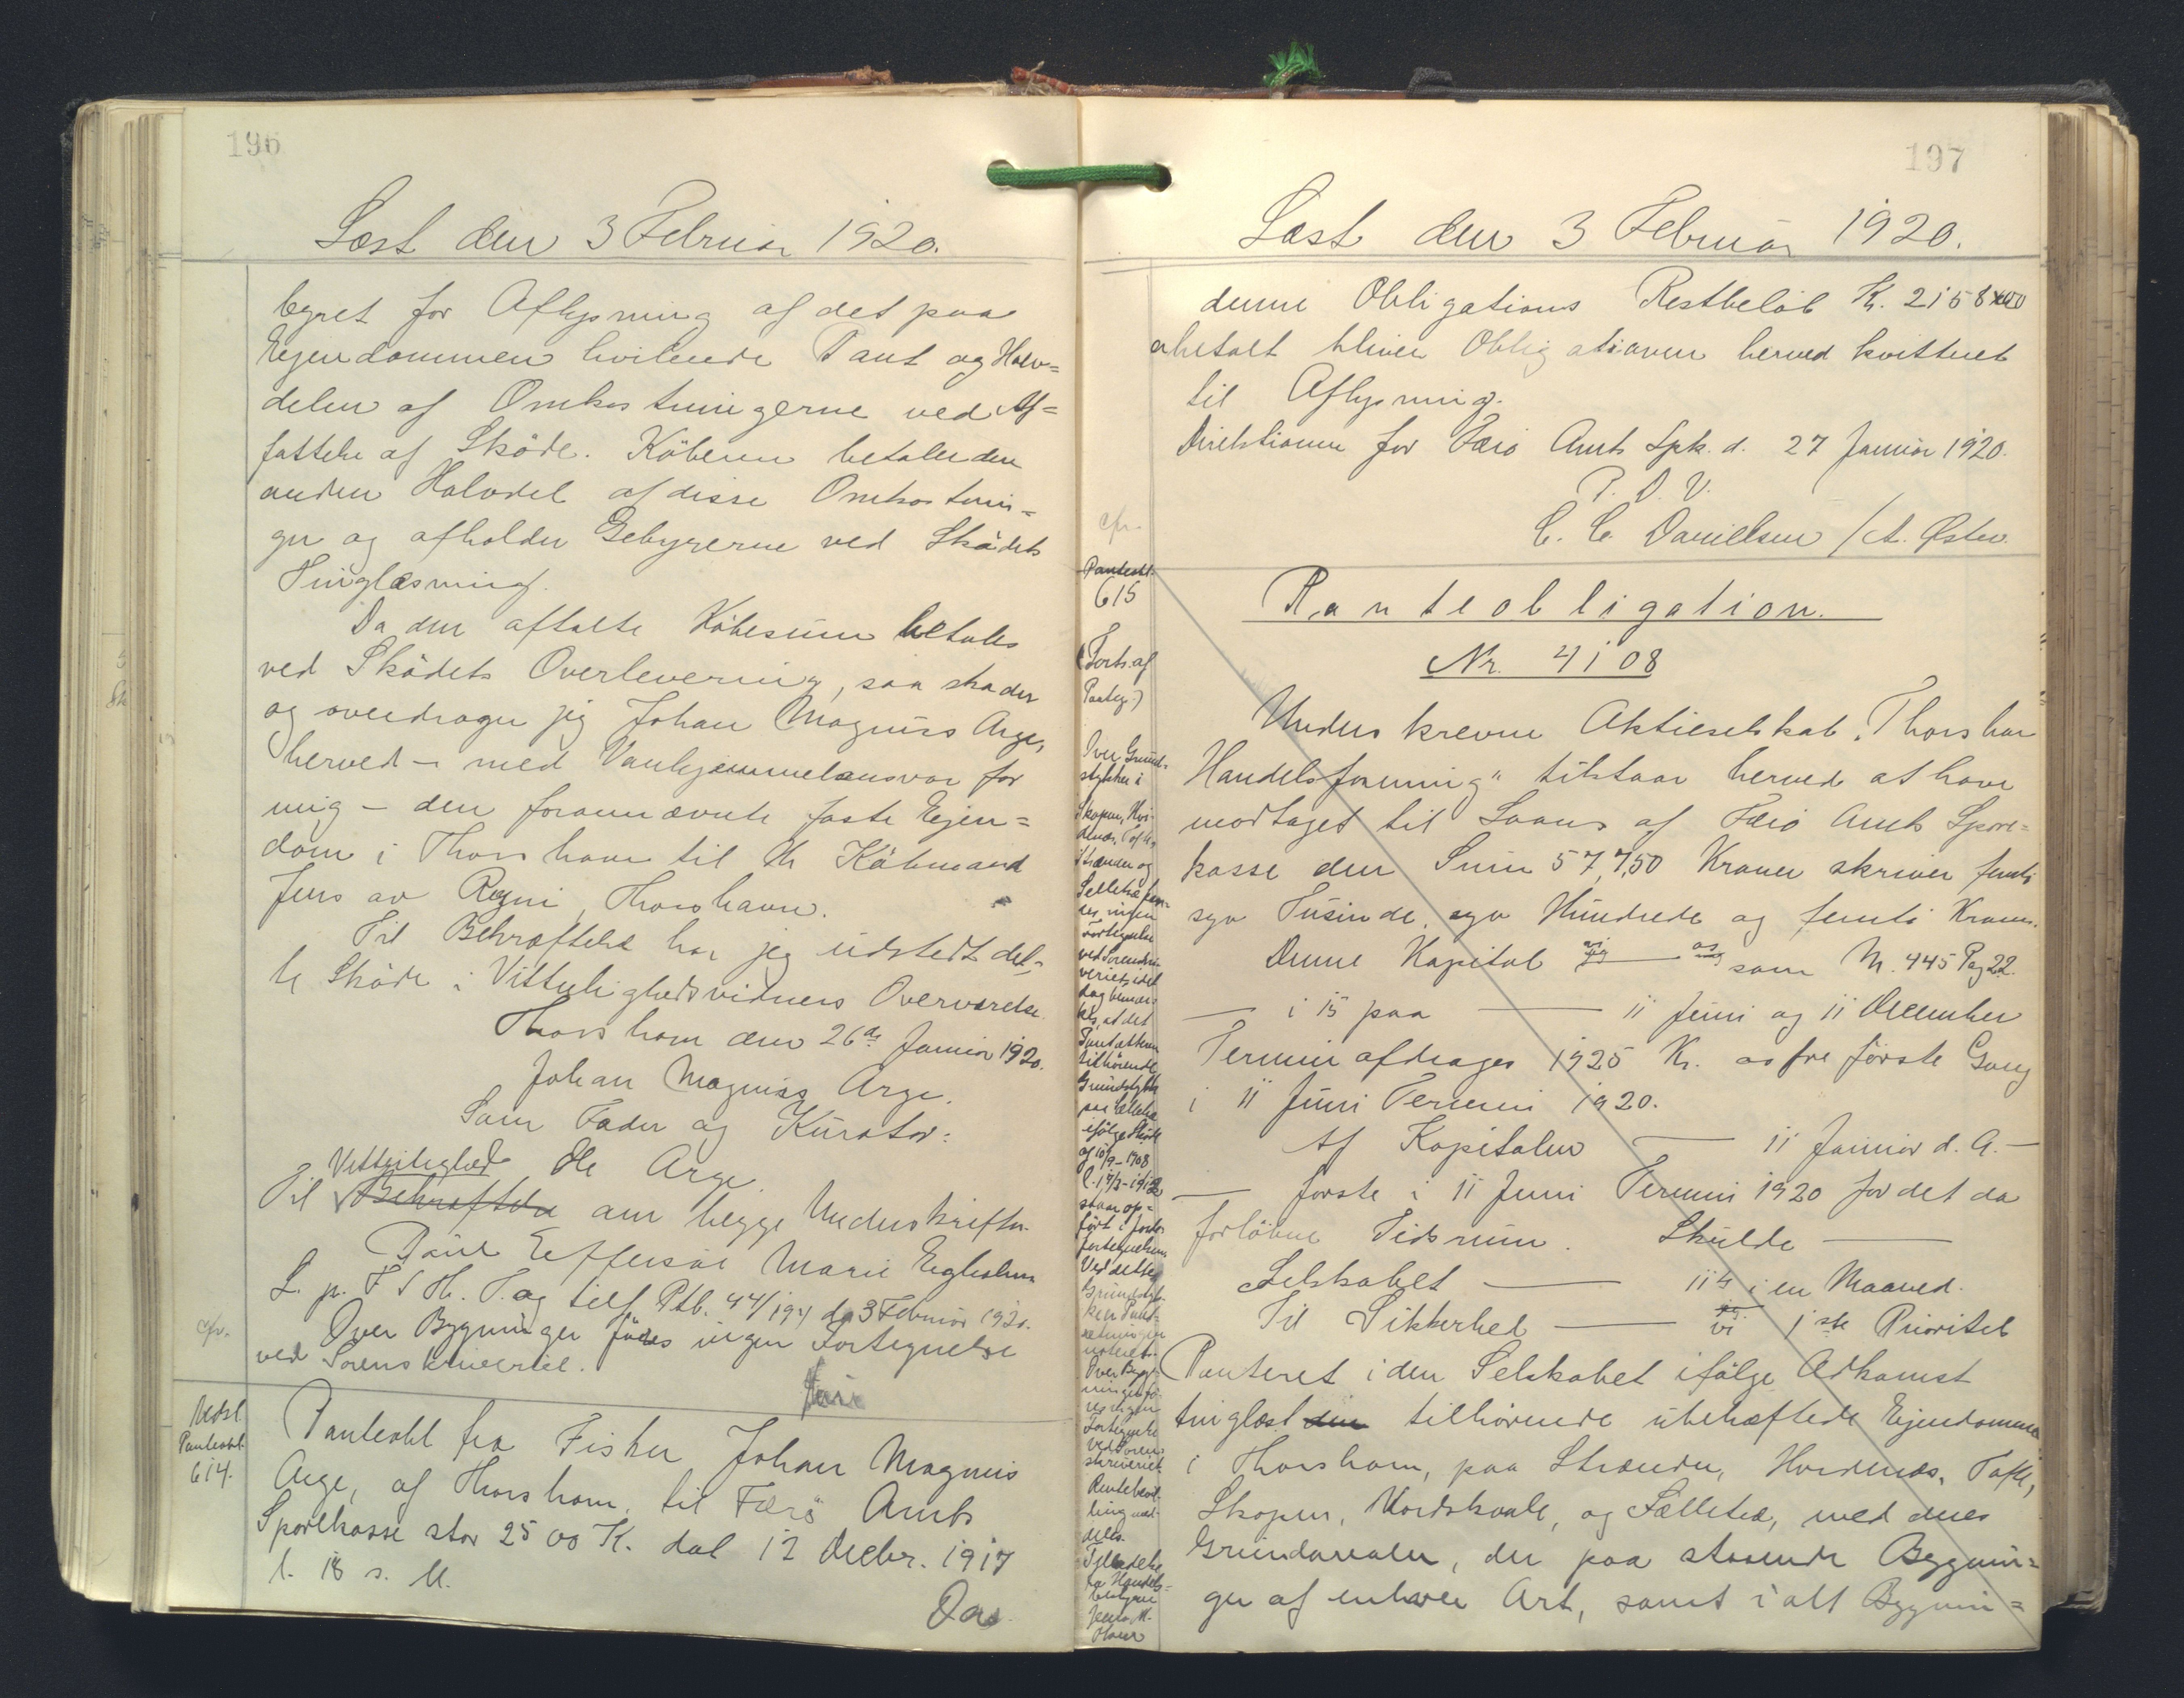 196
Læst den 3 Februar 1920.
byret for Aflysning af det paa
Ejendommen hvilende Pant og Halv=
delen af Omkostningerne ved Af=
fattelse af Sköde. Köberen betaler den
anden Halvdel af disse Omkostnin=
ger og afholder Gebyrerne ved Sködets
Tinglæsning.
Da den aftalte Köbesum betales
ved Sködets Overlevering, saa skøder
og overdrager jeg Johan Magnus Arge,
herved - med Vanhjemmelsansvar for
mig - den forannævnte faste Ejen=
dom i Thorshavn til Hr Köbmand
Jens av Reyni, Thorshavn.
Til Bekræftelse har jeg udstedt det=
te Sköde i Vitterlighedsvidners Overværelse.
Thorshavn den 26de Januar 1920.
Johan Magnus Arge.
Som Fader og Kurator:
Ole Arge.
Vitterlighed
Til Bekræftelse om begge Underskrifter.
Poul Effersöe Marie Eigholm
L. p. F. S. Th. T. og tilf. Ptb. 44/194 d. 3 Februar 1920.
cfr.
Over Bygninger føres ingen Fortegnelse
ved Sorenskriveriet.
Udsl.
Panteobl.
614.
Panteobl fra Fisker Johan Magnus
Arge, af Thorshavn, til Færö Amts
Sparekasse stor 2500 K. dat 12 Decbr. 1917
l. 18 s. M.
Da
197
Læst den 3 Februar 1920.
denne Obligations Restbelöb Kr. 2158
er betalt bliver Obligationen herved kvitteret
til Aflysning.
Direktionen for Færö Amts Spk. d. 27 Januar 1920.
P. D. V.
C. C. Danielsen / A. Østerø
cfr.
Panteobl.
615
(Forts. af
Panteg.)
Over Grund-
stykker i
Skopun, Hvi-
denæs, Tofte,
Strænder og
Selletræ fø-
res ingen
Fortegnelse
ved Sorenskri-
veriet, idet
dog bemær-
kes, at det
Pantsætteren
tilhörende
Grundstykke
paa Selletræ
ifölge Sköde
af 10/9-1908
l. 14/3-1912
staar op-
fört i Jord-
fortegnelsen.
Ved dette
Grundstyk-
ke er Pant-
sætningen
noteret.
Over Byg-
ninger fö-
res ingen
Fortegnelse
ved Soren-
skriveriet.
Rentebevil-
ling med-
deles.
Tilladelse
fra Handels-
Panteobligation.
Nr. 4108
Underskrevne Aktieselskab "Thorshavn
Handelsforening" tilstaar herved at have
modtaget til Laans af Færö Amts Spare=
kasse den Sum 57,750 Kroner skriver femti
syv Tusinde, syv Hundrede og femti Kroner.
Denne Kapital vi — os som N. 445 Pag 22.
— i 15 paa — 11 Juni og 11 December
Termin afdrages 1925 Kr. os fra förste Gang
i 11 Juni Termin 1920.
Af Kapitalen — 11 Januar d. A. —
— förste i 11 Juni Termin 1920 for det da
forlöbne Tidsrum. Skulde —
Selskabet — i en Maaned.
Til Sikkerhed — vi 1ste Prioritet
Panteret i den Selskabet ifölge Adkomst
tinglæst den tilhörende ubehæftede Ejendomme
i Thorshavn, paa Strænder, Hvidenæs, Tofte,
Skopun, Nordskaale, og Sælletræ, med deres
Grundarealer, der paa staaende Bygnin=
ger af enhver Art, samt i alt Bygnin=